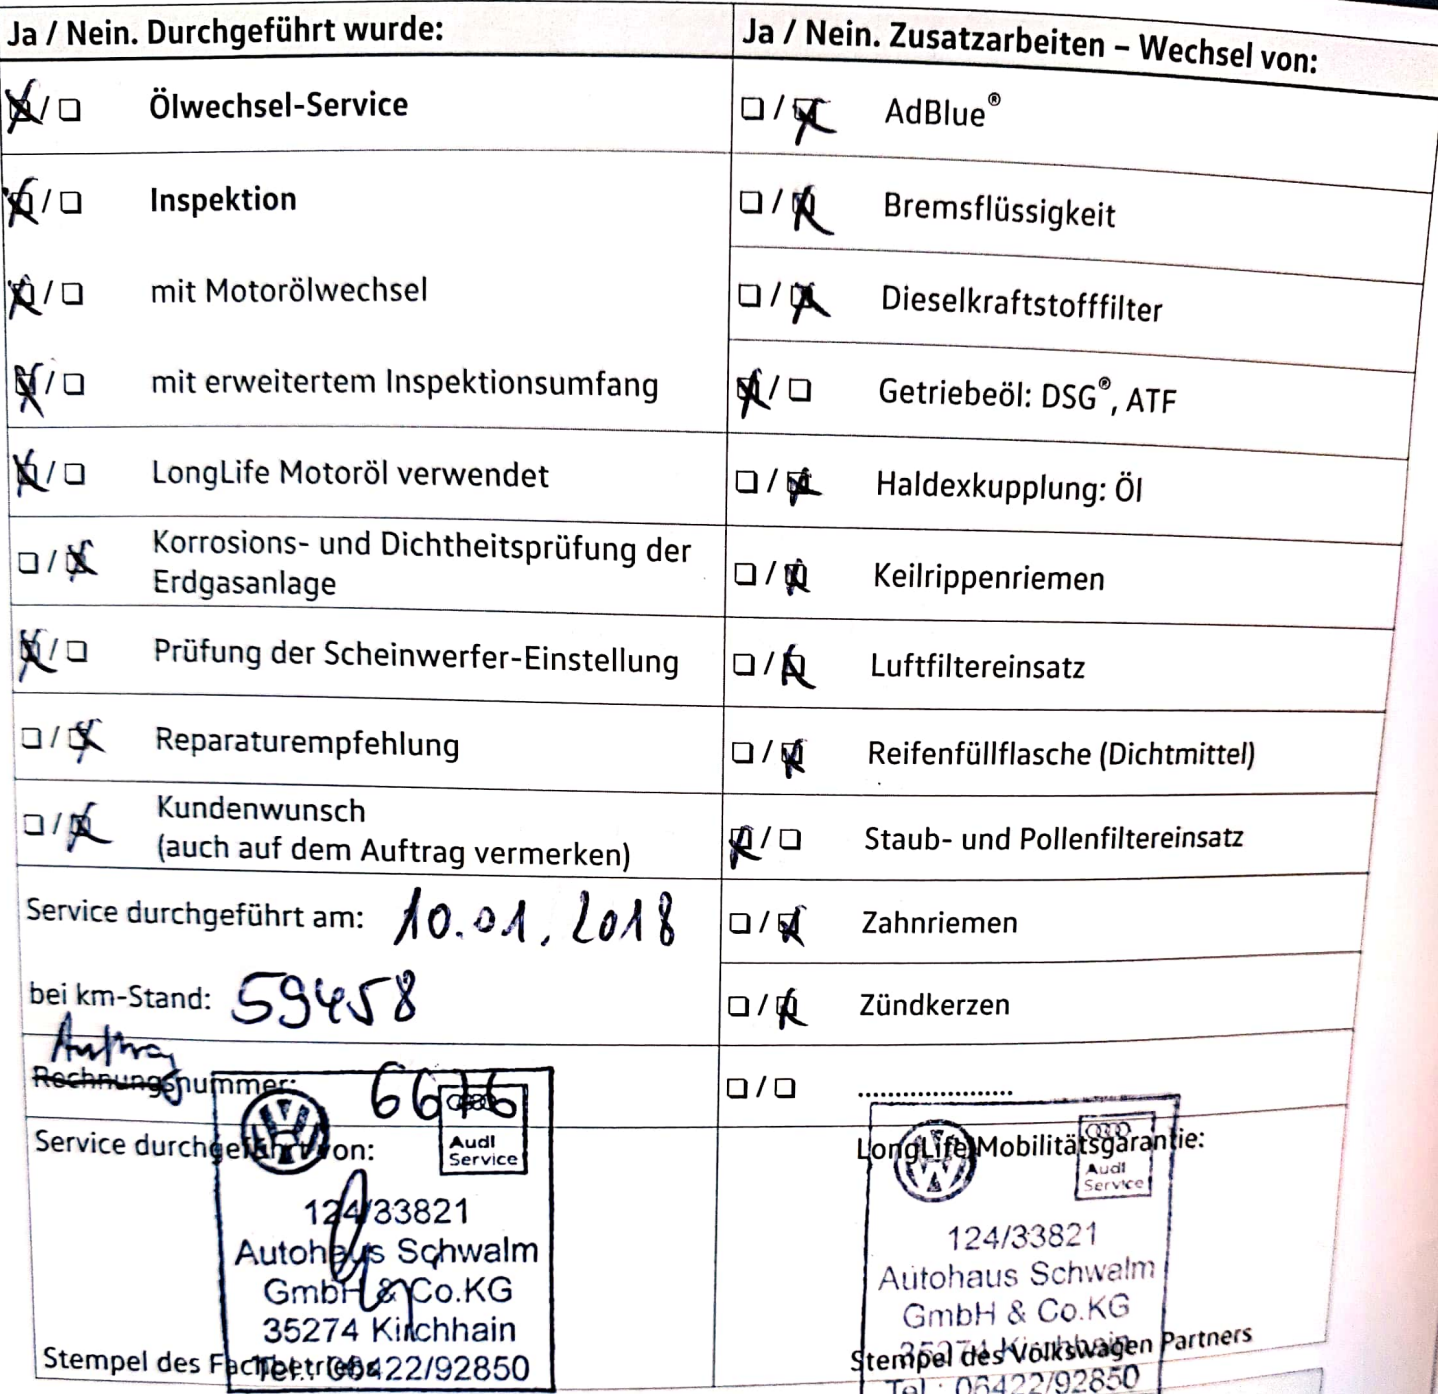 Ja / Nein. Durchgeführt wurde:
Ölwechsel-Service
Inspektion
mit Motorölwechsel
mit erweitertem Inspektionsumfang
LongLife Motoröl verwendet
Korrosions- und Dichtheitsprüfung der
Erdgasanlage
Prüfung der Scheinwerfer-Einstellung
Reparaturempfehlung
Kundenwunsch
(auch auf dem Auftrag vermerken)
Service durchgeführt am: 10.01.2018
bei km-Stand: 59458
Auftrag
Rechnungsnummer: 6616
Service durchgeführt von:
Audi
Service
124/33821
Autohaus Schwalm
GmbH & Co.KG
35274 Kirchhain
Tel.: 06422/92850
Stempel des Fachbetriebs
Ja / Nein. Zusatzarbeiten – Wechsel von:
AdBlue®
Bremsflüssigkeit
Dieselkraftstofffilter
Getriebeöl: DSG®, ATF
Haldexkupplung: Öl
Keilrippenriemen
Luftfiltereinsatz
Reifenfüllflasche (Dichtmittel)
Staub- und Pollenfiltereinsatz
Zahnriemen
Zündkerzen
......................
LongLife Mobilitätsgarantie:
Audi
Service
124/33821
Autohaus Schwalm
GmbH & Co.KG
35274 Kirchhain
Stempel des Volkswagen Partners
Tel.: 06422/92850